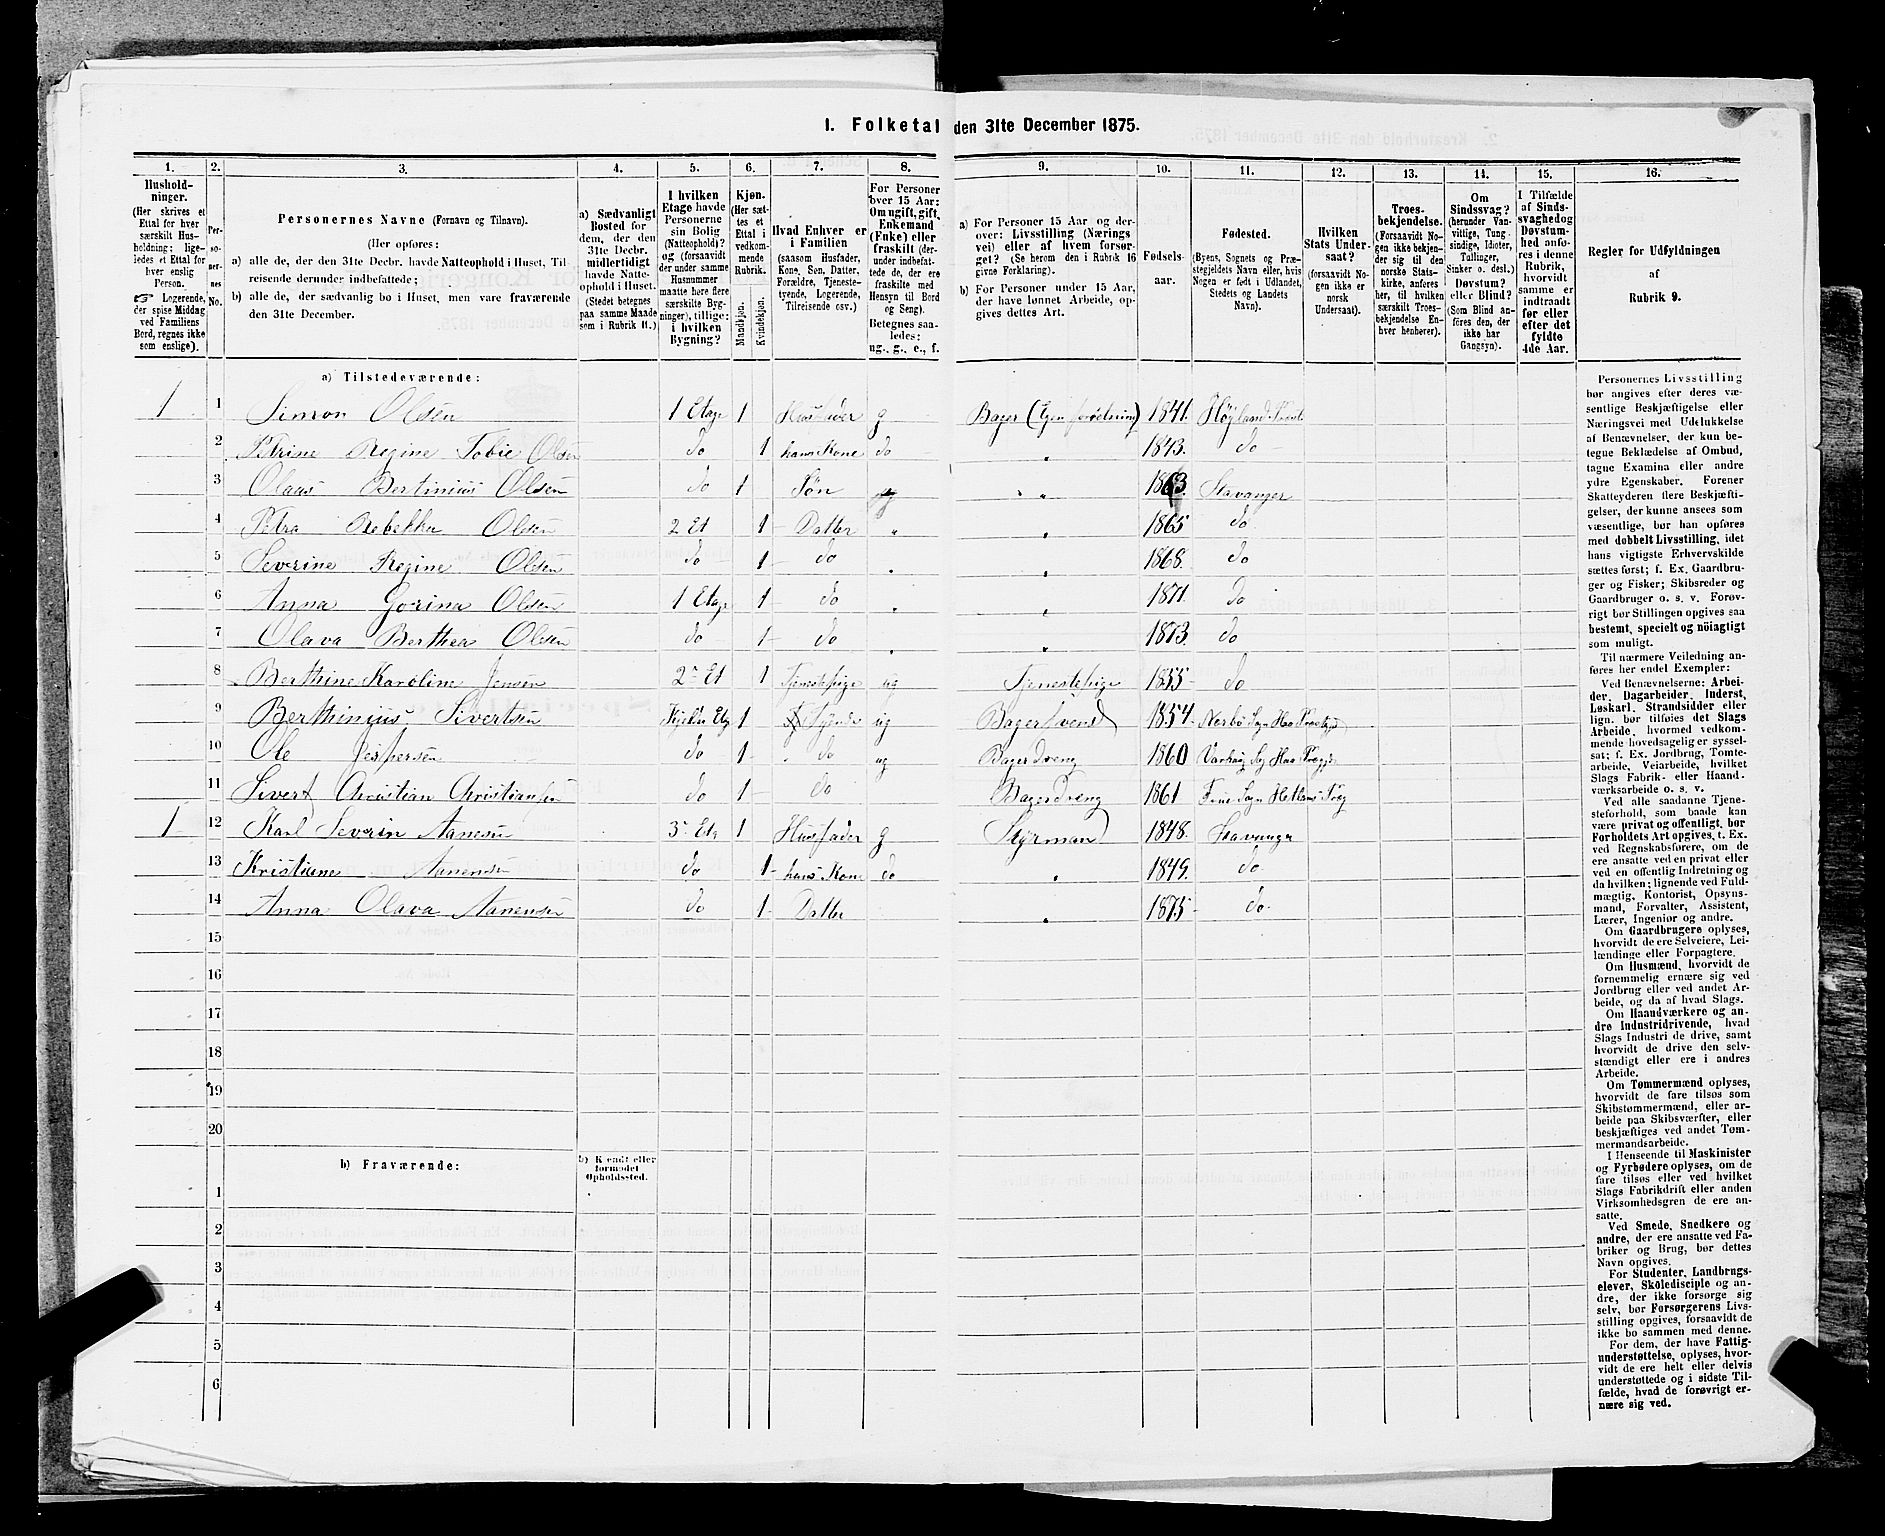 1. Folketal den 31te December 1875.
1. 2. 3. 4. 5. 6. 7. 8. 9. 10. 11. 12. 13. 14. 15. 16.
Hushold-
ninger.
(Her skrives et
Ettal for hver
særskilt Hus-
holdning; lige-
ledes et Ettal for
hver enslig
Person.
☞ Logerende,
der spise Middag
ved Familiens
Bord, regnes ikke
som enslige).
Per-
so-
ner-
nes
No.
Personernes Navne (Fornavn og Tilnavn).
(Her opføres:
a) alle de, der den 31te Decbr. havde Natteophold i Huset, Til-
reisende derunder indbefattede;
b) alle de, der sædvanlig bo i Huset, men vare fraværende
den 31te December.
a) Sædvanligt
Bosted for
dem, der den
31te Decbr.
midlertidigt
havde Natte-
ophold i Huset.
(Stedet betegnes
paa samme Maade
som i Rubrik 11.)
I hvilken
Etage havde
Personerne
sin Bolig
(Natteophold)?
og (forsaavidt
der under samme
Husnummer
maatte høre flere
særskilte Byg-
ninger), tillige:
i hvilken
Bygning?
Kjøn.
(Her sæt-
tes et
Ettal i
vedkom-
mende
Rubrik.
Mandkjøn.
Kvindekjøn.
Hvad Enhver er
i Familien
(saasom Husfader,
Kone, Søn, Datter,
Forældre, Tjeneste-
tyende, Logerende,
Tilreisende osv.)
For Personer
over 15 Aar:
Om ugift, gift,
Enkemand
(Enke) eller
fraskilt (der-
under indbefat-
tede de, der ere
fraskilte med
Hensyn til Bord
og Seng).
Betegnes saa-
ledes:
ug., g., e., f.
a) For Personer 15 Aar og der-
over: Livsstilling (Nærings
vei) eller af hvem forsør-
get? (Se herom den i Rubrik 16
givne Forklaring).
b) For Personer under 15 Aar,
der have lønnet Arbeide, op-
gives dettes Art.
Fødsels-
aar.
Fødested.
(Byens, Sognets og Præ-
stegjeldets Navn eller, hvis
Nogen er født i Udlandet,
Stedets og Landets
Navn).
Hvilken
Stats Under-
saat?
(forsaavidt No-
gen ikke er
norsk
Undersaat).
Troes-
bekjendelse.
(Forsaavidt No-
gen ikke bekjen-
der sig til den
norske Stats-
kirke, anføres
her, til hvilken
særskilt Troes-
bekjendelse En-
hver henhører).
Om
Sindssvag?
(herunder Van-
vittige, Tung-
sindige, Idioter,
Tullinger,
Sinker o. desl.)
Døvstum?
eller Blind?
(Som Blind an-
føres den, der
ikke har
Gangsyn).
I Tilfælde
af Sinds-
svaghed og
Døvstum-
hed anfø-
res i denne
Rubrik,
hvorvidt
samme er
indtraadt
før eller
efter det
fyldte
4de Aar.
Regler for Udfyldningen
af
Rubrik 9.
a) Tilstedeværende:
1 1 Simon Olsen 1 Etage 1 Husfader g Bager (Egen forretning) 1841. Højland
2 Petrine Regine Tobie Olsen do 1 hans Kone do " 1843. do
3 Olaus Bertinius Olsen do 1 Søn " 1863. Stavanger
4 Petra Rebekka Olsen 2 Et 1 Datter " " 1865 do
5 Severine Regine Olsen do 1 do " " 1868. do
6 Anna Gorina Olsen 1 Etage 1 do " " 1871. do
7 Olava Berthea Olsen do 1 do " " 1873. do
8 Berthine Karoline Jensen 2 Et 1 Tjenestepige ug Tjenestepige 1855 do
9 Berthinius Sivertsen 1 ug Bagersvend 1854 Nerbø Sogn
10 Ole Jespersen do 1 do ug Bagerdreng 1860
11 Sivert Christian Christiansen do 1 do Bagerdreng 1861
1 12 Karl Severin Aanesen 3 Etg 1 Husfader g Styrmand 1848. Stavanger
13 Kristiane Aanensen do 1 hans Kone do " 1849. do
14 Anna Olava Aanensen do 1 Datter " 1875 do
15
16
17
18
19
20
b) Fraværende:
b) Kjendt eller
formodet
Opholdssted.
1
2
3
4
5
6
Personernes Livsstilling
bør angives efter deres væ-
sentlige Beskjæftigelse eller
Næringsvei med Udelukkelse
af Benævnelser, der kun be-
tegne Beklædelse af Ombud,
tagne Examina eller andre
ydre Egenskaber. Forener
Skatteyderen flere Beskjæfti-
gelser, der kunne ansees som
væsentlige, bør han opføres
med dobbelt Livsstilling, idet
hans vigtigste Erhvervskilde
sættes først; f. Ex. Gaardbru-
ger og Fisker; Skibsreder og
Gaardbruger o. s. v. Forøv-
rigt bør Stillingen opgives saa
bestemt, specielt og nøiagtigt
som muligt.
Til nærmere Veiledning an-
føres her endel Exempler:
Ved Benævnelserne: Arbei-
der, Dagarbeider, Inderst,
Løskarl, Strandsidder eller
lign. bør tilføies det Slags
Arbeide, hvormed vedkom-
mende hovedsagelig er syssel-
sat; f. Ex. Jordbrug, Tomte-
arbeide, Veiarbeide, hvilket
Slags Fabrik- eller Haand-
værksarbeide o. s. v.
Ved alle saadanne Tjene-
steforhold, som baade kan
være privat og offentligt, bør
Forholdets Art opgives, t. Ex.
ved Regnskabsførere, om de
ere ansatte ved en privat eller
ved en offentlig Indretning og
da hvilken; lignende ved Fuld-
mægtig, Kontorist, Opsyns-
mand, Forvalter, Assistent,
Lærer, Ingeniør og andre.
Om Gaardbrugere oplyses,
hvorvidt de ere Selveiere, Lei-
lændinge eller Forpagtere.
Om Husmænd, hvorvidt de
fornemmelig ernære sig ved
Jordbrug eller ved andet Ar-
beide, og da af hvad Slags.
Om Haandværkere og an-
dre Industridrivende, hvad
Slags Industri de drive, samt
hvorvidt de drive den selv-
stændigt eller ere i andres
Arbeide.
Om Tømmermænd oplyses,
hvorvidt de fare tilsøs som
Skibstømmermænd, eller ar-
beide paa Skibsværfter, eller
beskjæftiges ved andet Tøm-
mermandsarbeide.
I Henseende til Maskinister
og Fyrbødere oplyses, om de
fare tilsøs eller ved hvilket
Slags Fabrikdrift eller anden
Virksomhedsgren de ere an-
satte.
Ved Smede, Snedkere og
andre, der ere ansatte ved Fa-
briker og Brug, bør dettes
Navn opgives.
For Studenter, Landbrugs-
elever, Skoledisciple og an-
dre, der ikke forsørge sig
selv, bør Forsørgerens Livs-
stilling opgives, forsaavidt de
ikke bo sammen med denne.
For dem, der have Fattig-
understøttelse, oplyses, hvor-
vidt de ere helt eller delvis
understøttede og i sidste Til-
fælde, hvad de forøvrigt er-
nære sig ved.